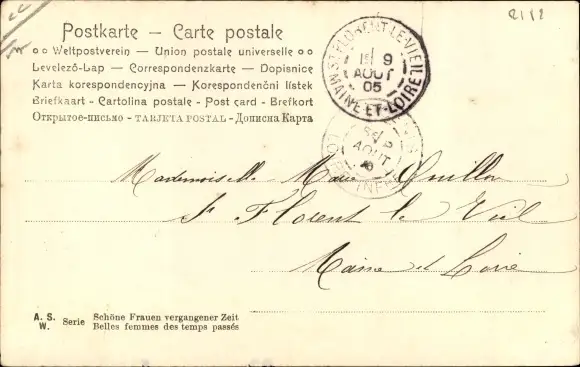 Postkarte — Carte postale
Weltpostverein — Union postale universelle
Levelező-Lap — Correspondenzkarte — Dopisnice
Karta korespondencyjna — Korespondenční lístek
Briefkaart - Cartolina postale - Post card - Brefkort
Открытое-письмо - TARJETA POSTAL - Дописна Карта
ST FLORENT-LE-VIEIL
9
AOUT
05
MAINE-ET-LOIRE
AOUT
Mademoiselle Marie
St Florent le Vieil
Maine et Loire
A. S. W. Serie Schöne Frauen vergangener Zeit
Belles femmes des temps passés